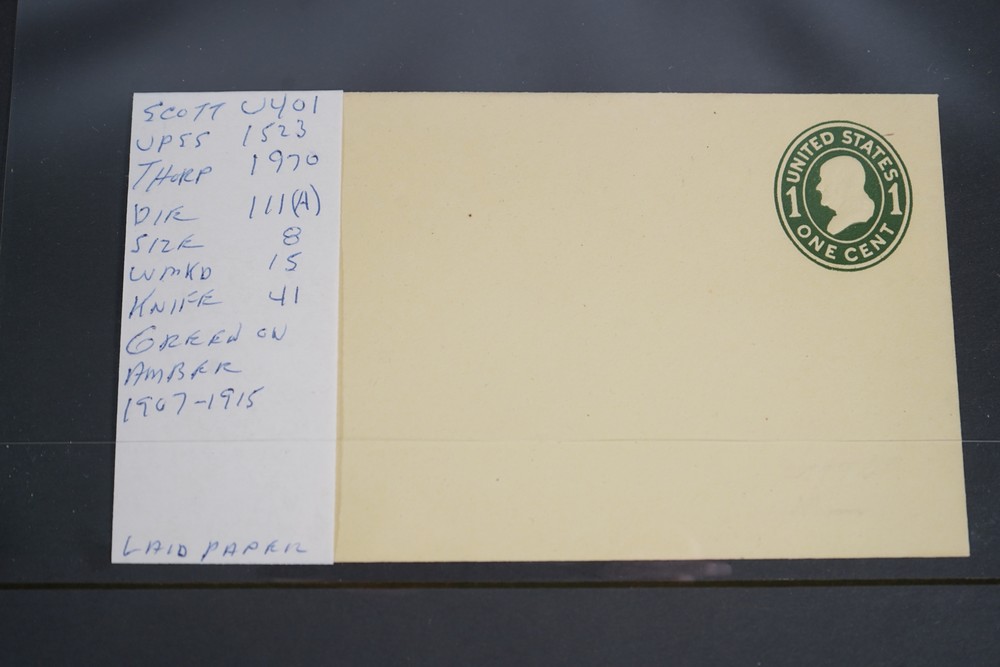 SCOTT U401
UPSS 1523
THORP 1970
DIE 111(A)
SIZE 8
WMKD 15
KNIFE 41
GREEN ON
AMBER
1907-1915
LAID PAPER
UNITED STATES
1 1
ONE CENT